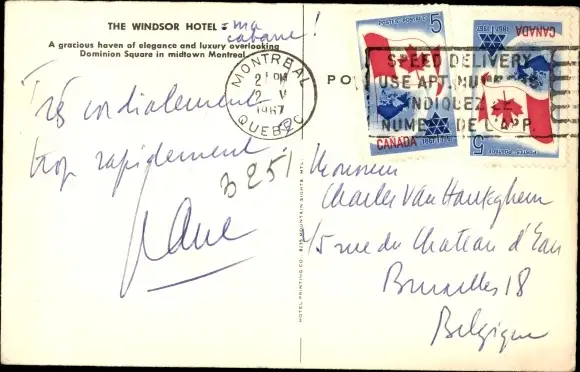 THE WINDSOR HOTEL = ma
cabane !
A gracious haven of elegance and luxury overlooking
Dominion Square in midtown Montreal
Très cordialement
trop rapidement
3251
MONTREAL
2 V
1967
QUEBEC
PO
SPEED DELIVERY
USE APT. NU
INDIQUEZ LE
NUMERO DE L'APP.
5
POSTES·POSTAGE
CANADA
1867·1967
5
POSTES·POSTAGE
CANADA
1867·1967
HOTEL PRINTING CO.
Monsieur
Charles Van
15 rue du Chateau d'Eau
Bruxelles 18
Belgique